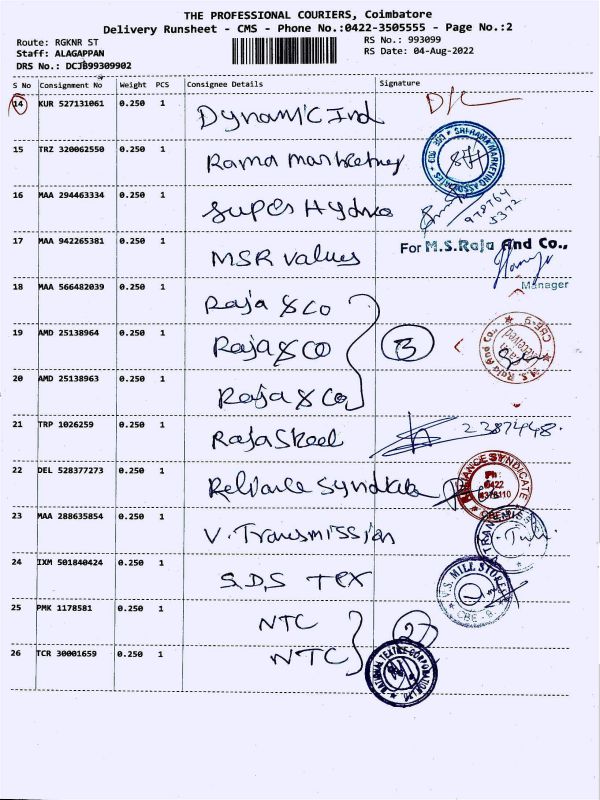 THE PROFESSIONAL COURIERS, Coimbatore
Delivery Runsheet - CMS - Phone No.:0422-3505555 - Page No.:2
Route: RGKNR ST
RS No.: 993099
Staff: ALAGAPPAN
RS Date: 04-Aug-2022
DRS No.: DCJB99309902
S No Consignment No Weight PCS Consignee Details Signature
14 KUR 527131061 0.250 1 Dynamic Ind D/C
15 TRZ 320062550 0.250 1 Rama Marketing
SRI RAMA MARKETING ASSOCIATES
16 MAA 294463334 0.250 1 Super Hydro
978764
5372
17 MAA 942265381 0.250 1 MSR Values
For M.S.Raja And Co.,
Manager
18 MAA 566482039 0.250 1 Raja & Co
19 AMD 25138964 0.250 1 Raja & Co 3
M.S. Raja And Co., CBE-9
Received
20 AMD 25138963 0.250 1 Raja & Co
21 TRP 1026259 0.250 1 Raja Steel 2387448.
22 DEL 528377273 0.250 1 Reliance Syndicate
RELIANCE SYNDICATE
Ph:
0422
23 MAA 288635854 0.250 1 V. Transmission
24 IXM 501840424 0.250 1 S.D.S Tex
MILL STORES
CBE-9.
25 PMK 1178581 0.250 1 NTC
26 TCR 30001659 0.250 1 NTC
NATIONAL TEXTILE CORPORATION LTD